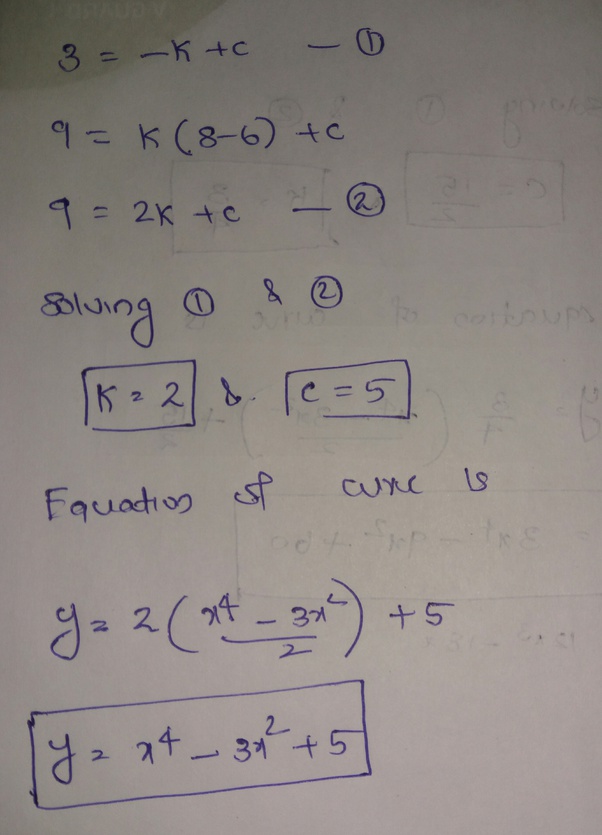 3 = -K + C — ①
9 = K (8-6) + C
9 = 2K + C — ②
solving ① & ②
K = 2 & C = 5
Equation of curve is
y = 2 ( (x⁴ - 3x²)/2 ) + 5
y = x⁴ - 3x² + 5